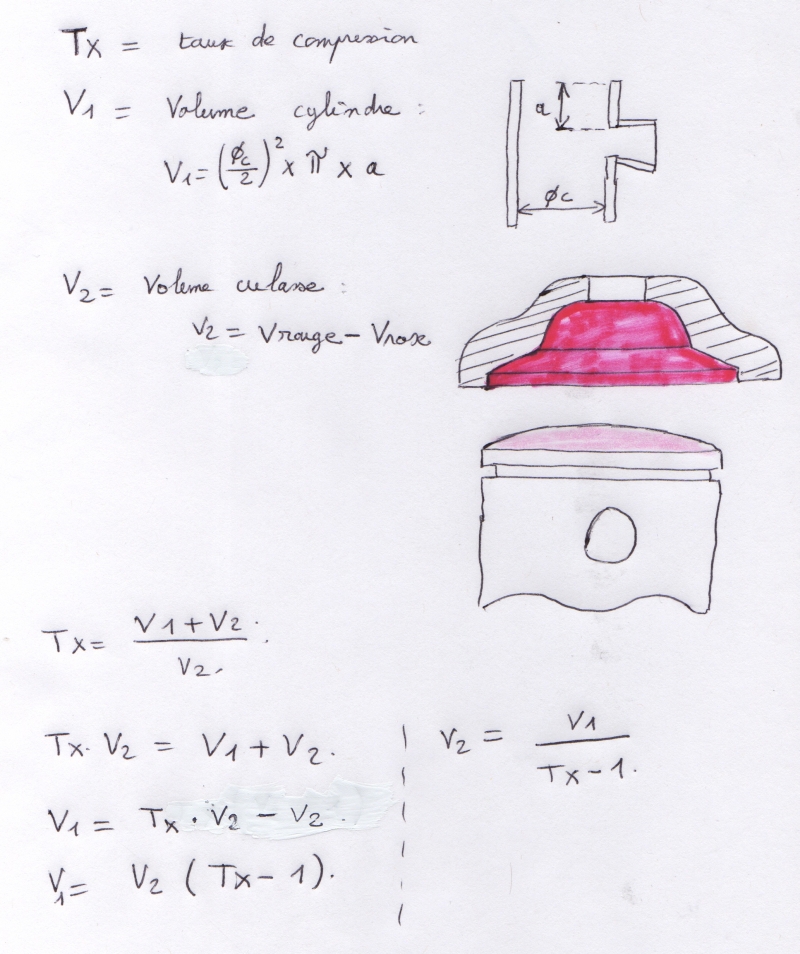 Tx = taux de compression
V1 = Volume cylindre :
V1 = (ϕc/2)² x π x a
a
ϕc
V2 = Volume culasse :
V2 = Vrouge - Vrose
Tx = V1 + V2 / V2.
Tx. V2 = V1 + V2.
V1 = Tx . V2 - V2.
V1 = V2 (Tx - 1).
V2 = V1 / Tx - 1.